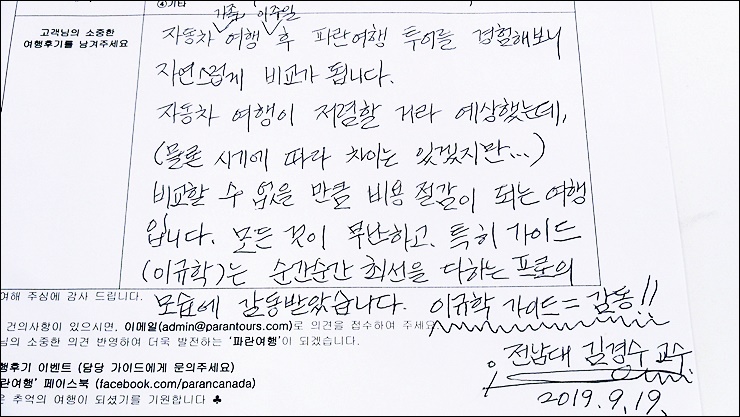 ④기타
고객님의 소중한
여행후기를 남겨주세요
가족 이주일
자동차 여행 후 파란여행 투어를 경험해보니
자연스럽게 비교가 됩니다.
자동차 여행이 저렴할 거라 예상했는데,
(물론 시기에 따라 차이는 있겠지만...)
비교할 수 없을 만큼 비용 절감이 되는 여행
입니다. 모든 것이 무난하고, 특히 가이드
(이규학)는 순간순간 최선을 다하는 프로의
모습에 감동받았습니다. 이규학 가이드 = 감동!!
여해 주심에 감사 드립니다.
건의사항이 있으시면, 이메일(admin@parantours.com)로 의견을 접수하여 주세요
님의 소중한 의견 반영하여 더욱 발전하는 '파란여행'이 되겠습니다.
전남대 김경수 교수
행후기 이벤트 (담당 가이드에게 문의주세요)
란여행' 페이스북 (facebook.com/parancanada)
은 추억의 여행이 되셨기를 기원합니다 ♣
2019.9.19.